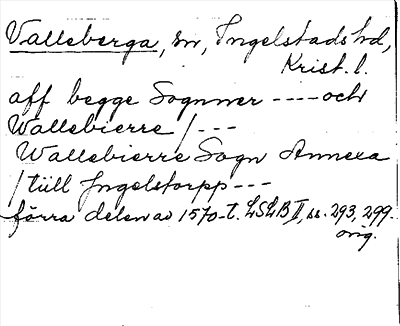 Valleberga, sn, Ingelstads hd,
Krist. l.
aff begge Sognner ---- och
Wallebierre / ---
Wallebierre Sogn Annexa
/ tiill Jngelstorpp ---
förra delen av 1570-t. LSLB II, ss. 293, 299.
orig.